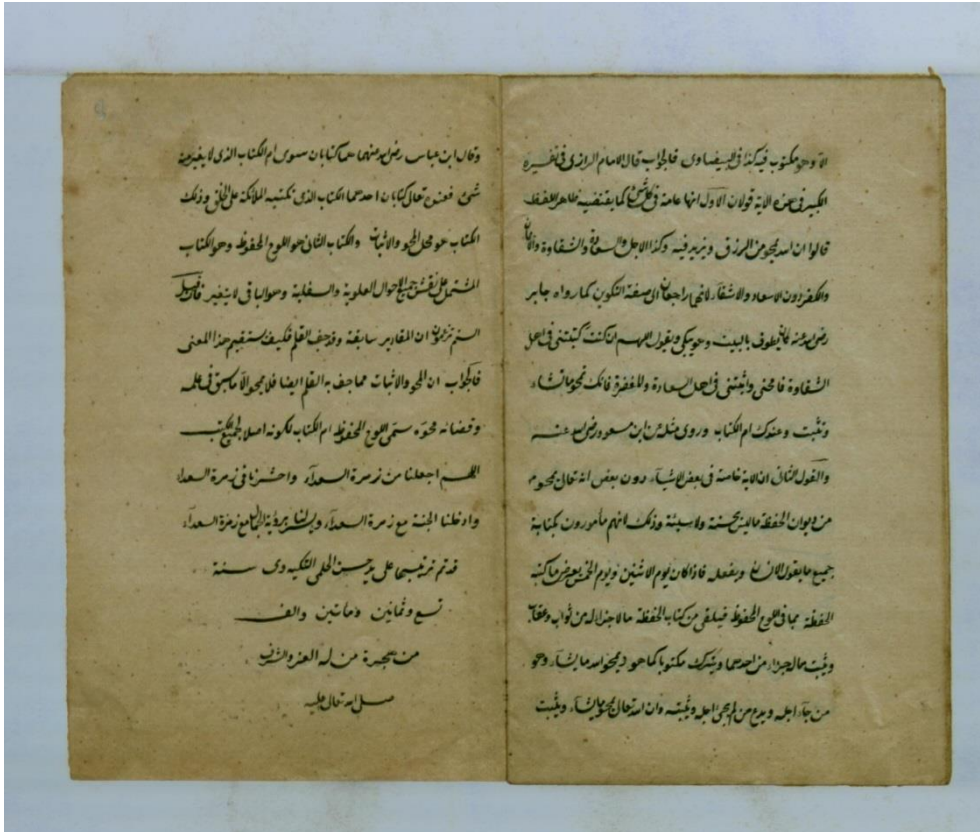 الا وهو مكتوب فيه كذا فى البيضاوى فالجواب قال الامام الرازى فى تفسيره
الكبير فى هذه الاية قولان الاول انها عامة فى كل شئ كما يقتضيه ظاهر اللفظ
قالوا ان الله يمحو من الرزق ويزيد فيه وكذا الاجل والسعادة والشقاوة والايمان
والكفر دون الاسعاد والاشقاء لانهما راجعان الى صفة التكوين كما رواه جابر
رضى الله عنه يطوف بالبيت وهو يبكى ويقول اللهم ان كنت كتبتنى فى اهل
الشقاوة فامحنى واثبتنى فى اهل السعادة والمغفرة فانك تمحو ما تشاء
وتثبت وعندك ام الكتاب وروى مثله عن ابن مسعود رضى الله عنه
والقول الثانى ان الاية خاصة فى بعض الاشياء دون بعض انه تعالى يمحو
من ديوان الحفظة ما ليس بحسنة ولا سيئة وذلك انهم مأمورون بكتابة
جميع ما يقول الانسان ويفعله فاذا كان يوم الاثنين ويوم الخميس يعرض ما كتبه
الحفظة بما فى اللوح المحفوظ فيلقى من كتاب الحفظة ما لا جزاء له من ثواب وعقاب
ويثبت ماله جزاء من احدهما ويترك مكتوبا كما هو ويمحو الله ما يشاء وهو
من جاء اجله ويدع من لم يجئ اجله ويثبته وان الله تعالى يمحو ما يشاء ويثبت
وقال ابن عباس رضى الله عنهما هما كتابان سوى ام الكتاب الذى لا يغير منه
شئ فعنده تعالى كتابان احدهما الكتاب الذى تكتبه الملائكة على الخلق وذلك
الكتاب هو محل المحو والاثبات والكتاب الثانى هو اللوح المحفوظ وهو الكتاب
المشتمل على نقش جميع الاحوال العلوية والسفلية وهو الباقى لا يتغير فان قيل
الستم تزعمون ان المقادير سابقة وقد جف القلم فكيف يستقيم هذا المعنى
فالجواب ان المحو والاثبات مما جف به القلم ايضا فلا يمحو الا ما سبق فى علمه
وقضائه محوه سمى اللوح المحفوظ ام الكتاب لكونه اصلا لجميع الكتب
اللهم اجعلنا من زمرة السعداء واحشرنا فى زمرة السعداء
وادخلنا الجنة مع زمرة السعداء برؤية الجمال مع زمرة السعداء
قد تم ترتيبها على يد حسن الحلمى سنة
تسع وثمانين ومأتين والف
من هجرة من له العز والشرف
صلى الله تعالى عليه